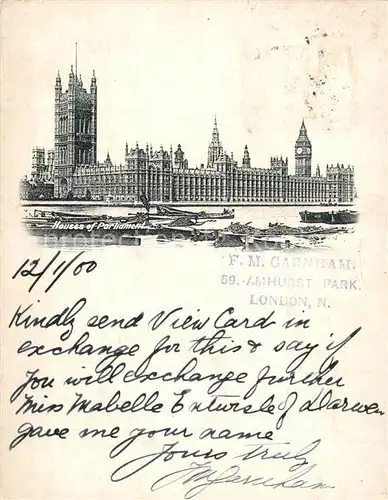 Houses of Parliament.
12/1/00
F. M. GARNHAM.
59, AMHURST PARK,
LONDON, N.
Kindly send View Card in
exchange for this & say if
you will exchange further
Miss Mabelle Entwistle of Darwen
gave me your name
Yours truly
F M Garnham